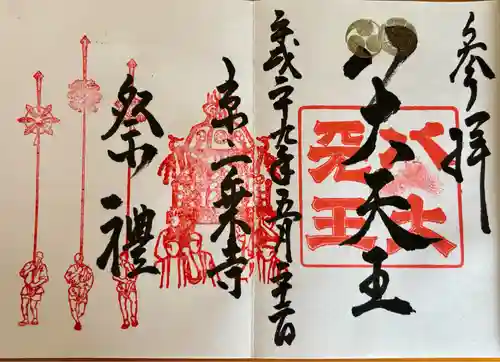 参拝
八大天王
八大
天王
平成二十九年五月二十二日
京一乗寺
祭禮